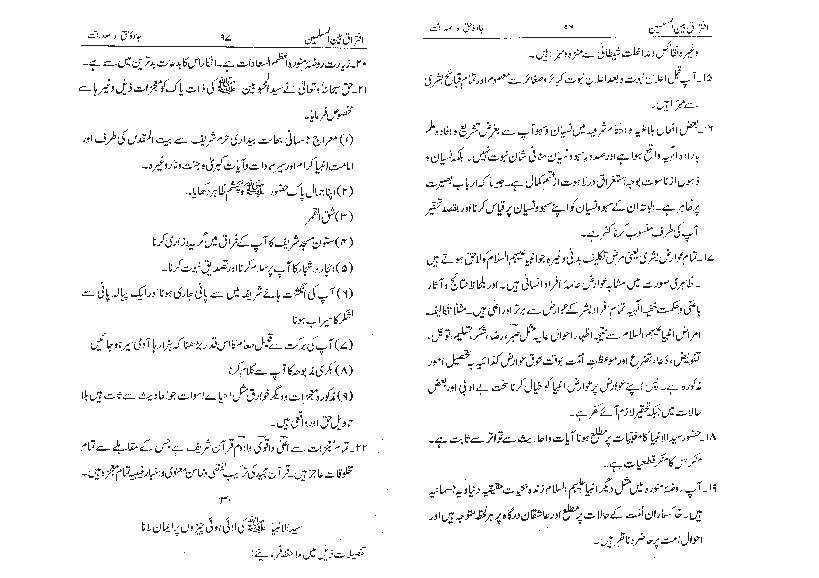 افتراق بین المسلمین ۹۶ جادۂ حق و صداقت
وغیرہ نقائص و مداخلت شیطانی سے منزہ و مبرا ہیں۔
۱۵۔ آپ قبل اعلان نبوت و بعد اعلان نبوت کبائر و صغائر سے معصوم اور تمام قبائح بشری
سے مبرا ہیں۔
۱۶۔ بعض افعال بلاغیہ و احکام شرعیہ میں نسیان و سہو آپ سے بغرض تشریع و افادہ علم
بارادہ الٰہیہ واقع ہوا ہے اور صدور سہو و نسیان منافی شان نبوت نہیں۔ بلکہ نسیان و
ذہول از ناسوت بوجہ استغراق در لاہوت از قسم کمال ہے۔ جیسا کہ ارباب بصیرت
پر ظاہر ہے۔ البتہ ان کے سہو و نسیان کو اپنے سہو و نسیان پر قیاس کرنا اور بقصد تحقیر
آپ کی طرف منسوب کرنا کفر ہے۔
۱۷۔ تمام عوارض بشری یعنی مرض تکالیف بدنی وغیرہ جو انبیا علیہم السلام کو لاحق ہوتے ہیں
۔ ظاہری صورت میں مشابہ عوارض عامہ افراد انسانی ہیں۔ اور بلحاظ نتائج و آثار
باطنی و حکمت خفیہ الٰہیہ تمام افراد بشر کے عوارض سے برتر اور اعلیٰ ہیں۔ مثلاً تکالیف
امراض انبیا علیہم السلام سے نتیجہ اظہار احوال عالیہ مثل صبر، رضا، شکر، تسلیم، توکل،
تفویض، دعا، تضرع اور موعظت امت بوقت لحوق عوارض کذائیہ بتحصیل امور
مذکورہ ہے۔ پس اپنے عوارض پر عوارض انبیا کو خیال کرنا سخت بے ادبی اور بعض
حالات میں جبکہ تحقیر لازم آئے کفر ہے۔
۱۸۔ حضور سید الانبیا کا مغیبات پر مطلع ہونا آیات و احادیث سے تواتر سے ثابت ہے۔
منکر اس کا منکر قطعیات ہے۔
۱۹۔ آپ روضۂ منورہ میں مثل دیگر انبیا علیہم السلام زندہ بحیات حقیقیہ دنیاویہ جسمانیہ
ہیں۔ خاکساران امت کے حالات پر مطلع اور عاشقان درگاہ پر ہر لحظہ متوجہ ہیں اور
احوال امت پر حاضر و ناظر ہیں۔
افتراق بین المسلمین ۹۷ جادۂ حق و صداقت
۲۰۔ زیارت روضۂ منورہ اعظم السعادات ہے۔ انکار اس کا بدعات بدترین میں سے ہے۔
۲۱۔ حق سبحانہ و تعالیٰ نے سید المحبوبین ﷺ کی ذات پاک کو معجزات ذیل وغیرہا سے
مخصوص فرمایا۔
(۱) معراج جسمانی بحالت بیداری حرم شریف سے بیت المقدس کی طرف اور
امامت انبیا کرام اور سیر سموات و آیات کبریٰ و جنت و نار وغیرہ۔
(۲) اپنا جمال پاک حضور ﷺ کو بچشم ظاہر دکھایا۔
(۳) شق القمر
(۴) ستون مسجد شریف کا آپ کے فراق میں گریہ و زاری کرنا
(۵) احجار و اشجار کا آپ پر سلام کرنا اور تصدیق نبوت کرنا۔
(۶) آپ کی انگشت ہائے شریف میں سے پانی جاری ہونا اور ایک پیالہ پانی سے
لشکر کا سیراب ہونا
(۷) آپ کی برکت سے قلیل طعام کا اس قدر بڑھنا کہ ہزارہا آدمی سیر ہو جائیں
(۸) بکری مذبوحہ کا آپ سے کلام کرنا
(۹) مذکورہ معجزات و دیگر خوارق مثل احیاے اموات جو احادیث سے ثابت ہیں بلا
تاویل حق اور واقعی ہیں۔
۲۲۔ تمام معجزات سے اعلیٰ و اقویٰ و ادوم قرآن شریف ہے جس کے مقابلے سے تمام
مخلوقات عاجز ہیں۔ قرآن مجید کی ترکیب لفظی و محاسن معنوی و اخبار غیبیہ تمام معجزہ ہیں۔
سید الانبیا ﷺ کی لائی ہوئی چیزوں پر ایمان لانا
تفصیلات ذیل میں ملاحظہ فرمائیے: